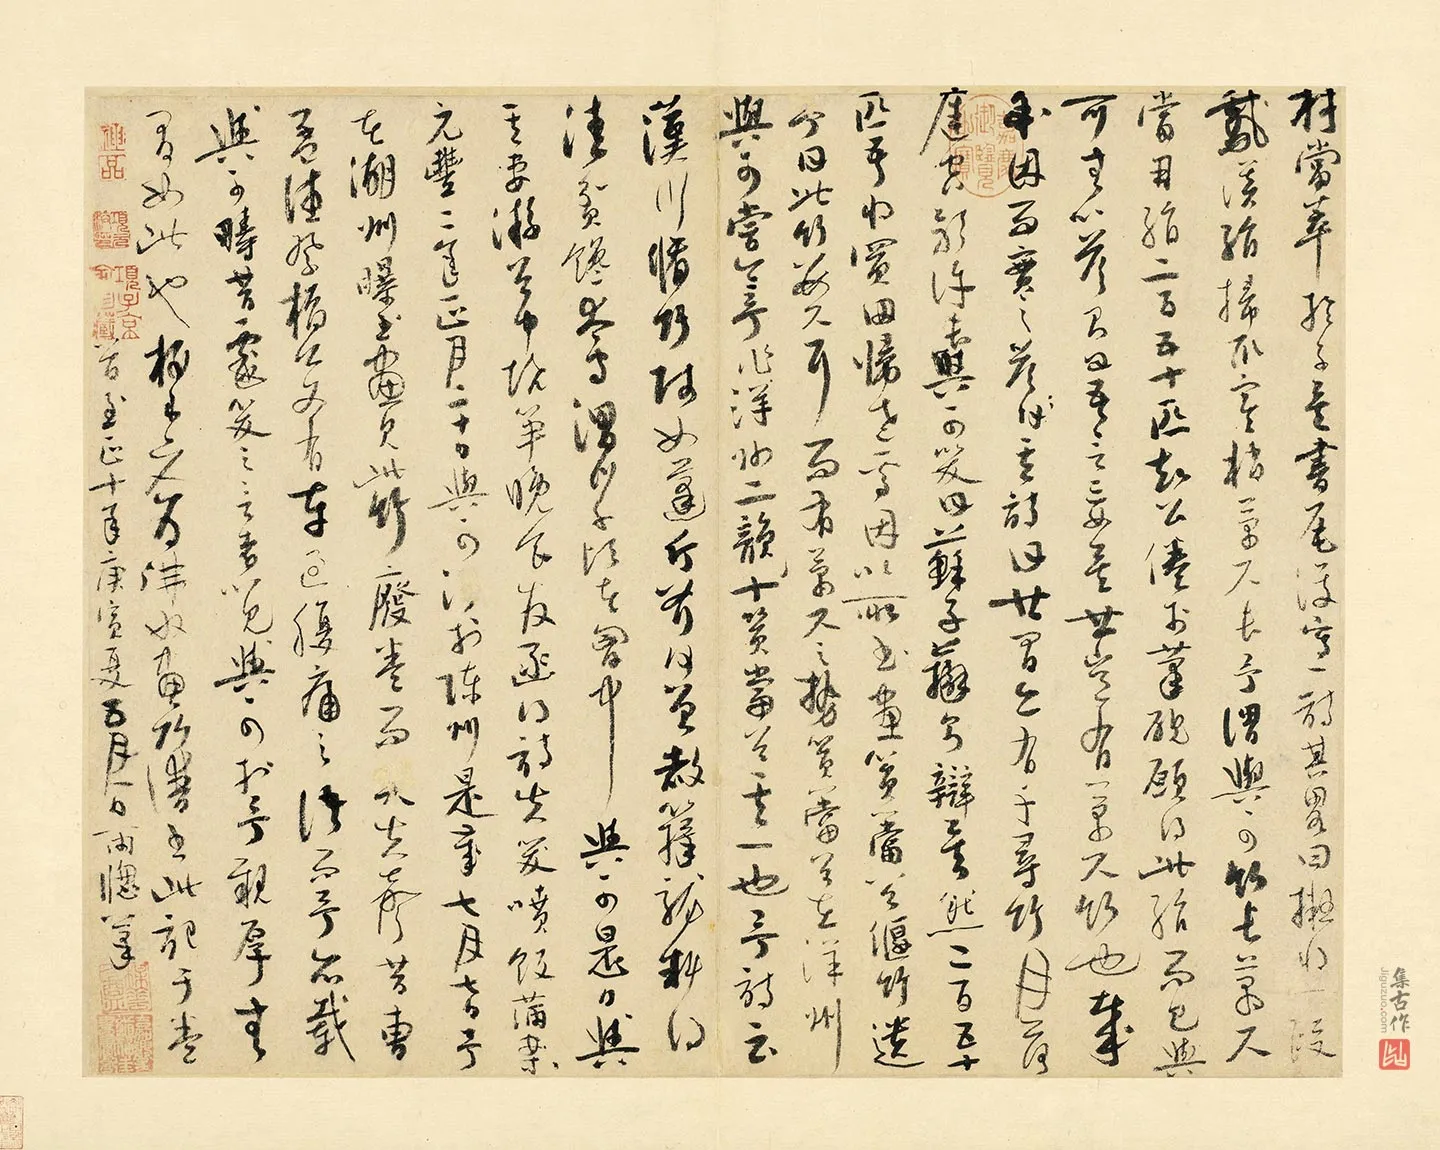 材當萃於子矣書尾復寫一詩其略曰擬將一段
鵝溪絹掃取寒梢萬尺長予謂與可竹長萬尺
當用絹二百五十匹知公倦於筆硯願得此絹而已與
可無以答則曰吾言妄矣世豈有萬尺竹也哉
余因而實之答其詩曰世間亦有千尋竹月落
庭空影許長與可笑曰蘇子辯則辯矣然二百五十
匹吾將買田歸老焉因以所畫篔簹谷偃竹遺
余曰此竹數尺耳而有萬尺之勢篔簹谷在洋州
與可嘗令予作洋州二韻十篔簹谷其一也予詩云
漢川脩竹賤如蓬斤斧何曾赦籜龍料得
清貧饞太守渭川千頃在胸中與可是日與
其妻游谷中燒筍晚食發函得詩失笑噴飯滿案
元豐二年正月二十日與可沒於陳州是歲七月七日予
在湖州曝書畫見此竹廢卷而哭失聲昔曹
孟德祭橋公文有車過腹痛之語而予亦載
與可疇昔戲笑之言者以見與可於予親厚無
間如此也梅老人為佛奴畫竹譜書此記于卷
首至正十年庚寅夏五月一日雨窗筆
神品
項子京家珍藏
嘉慶御覽之寶
集古作
jiguzuo.com